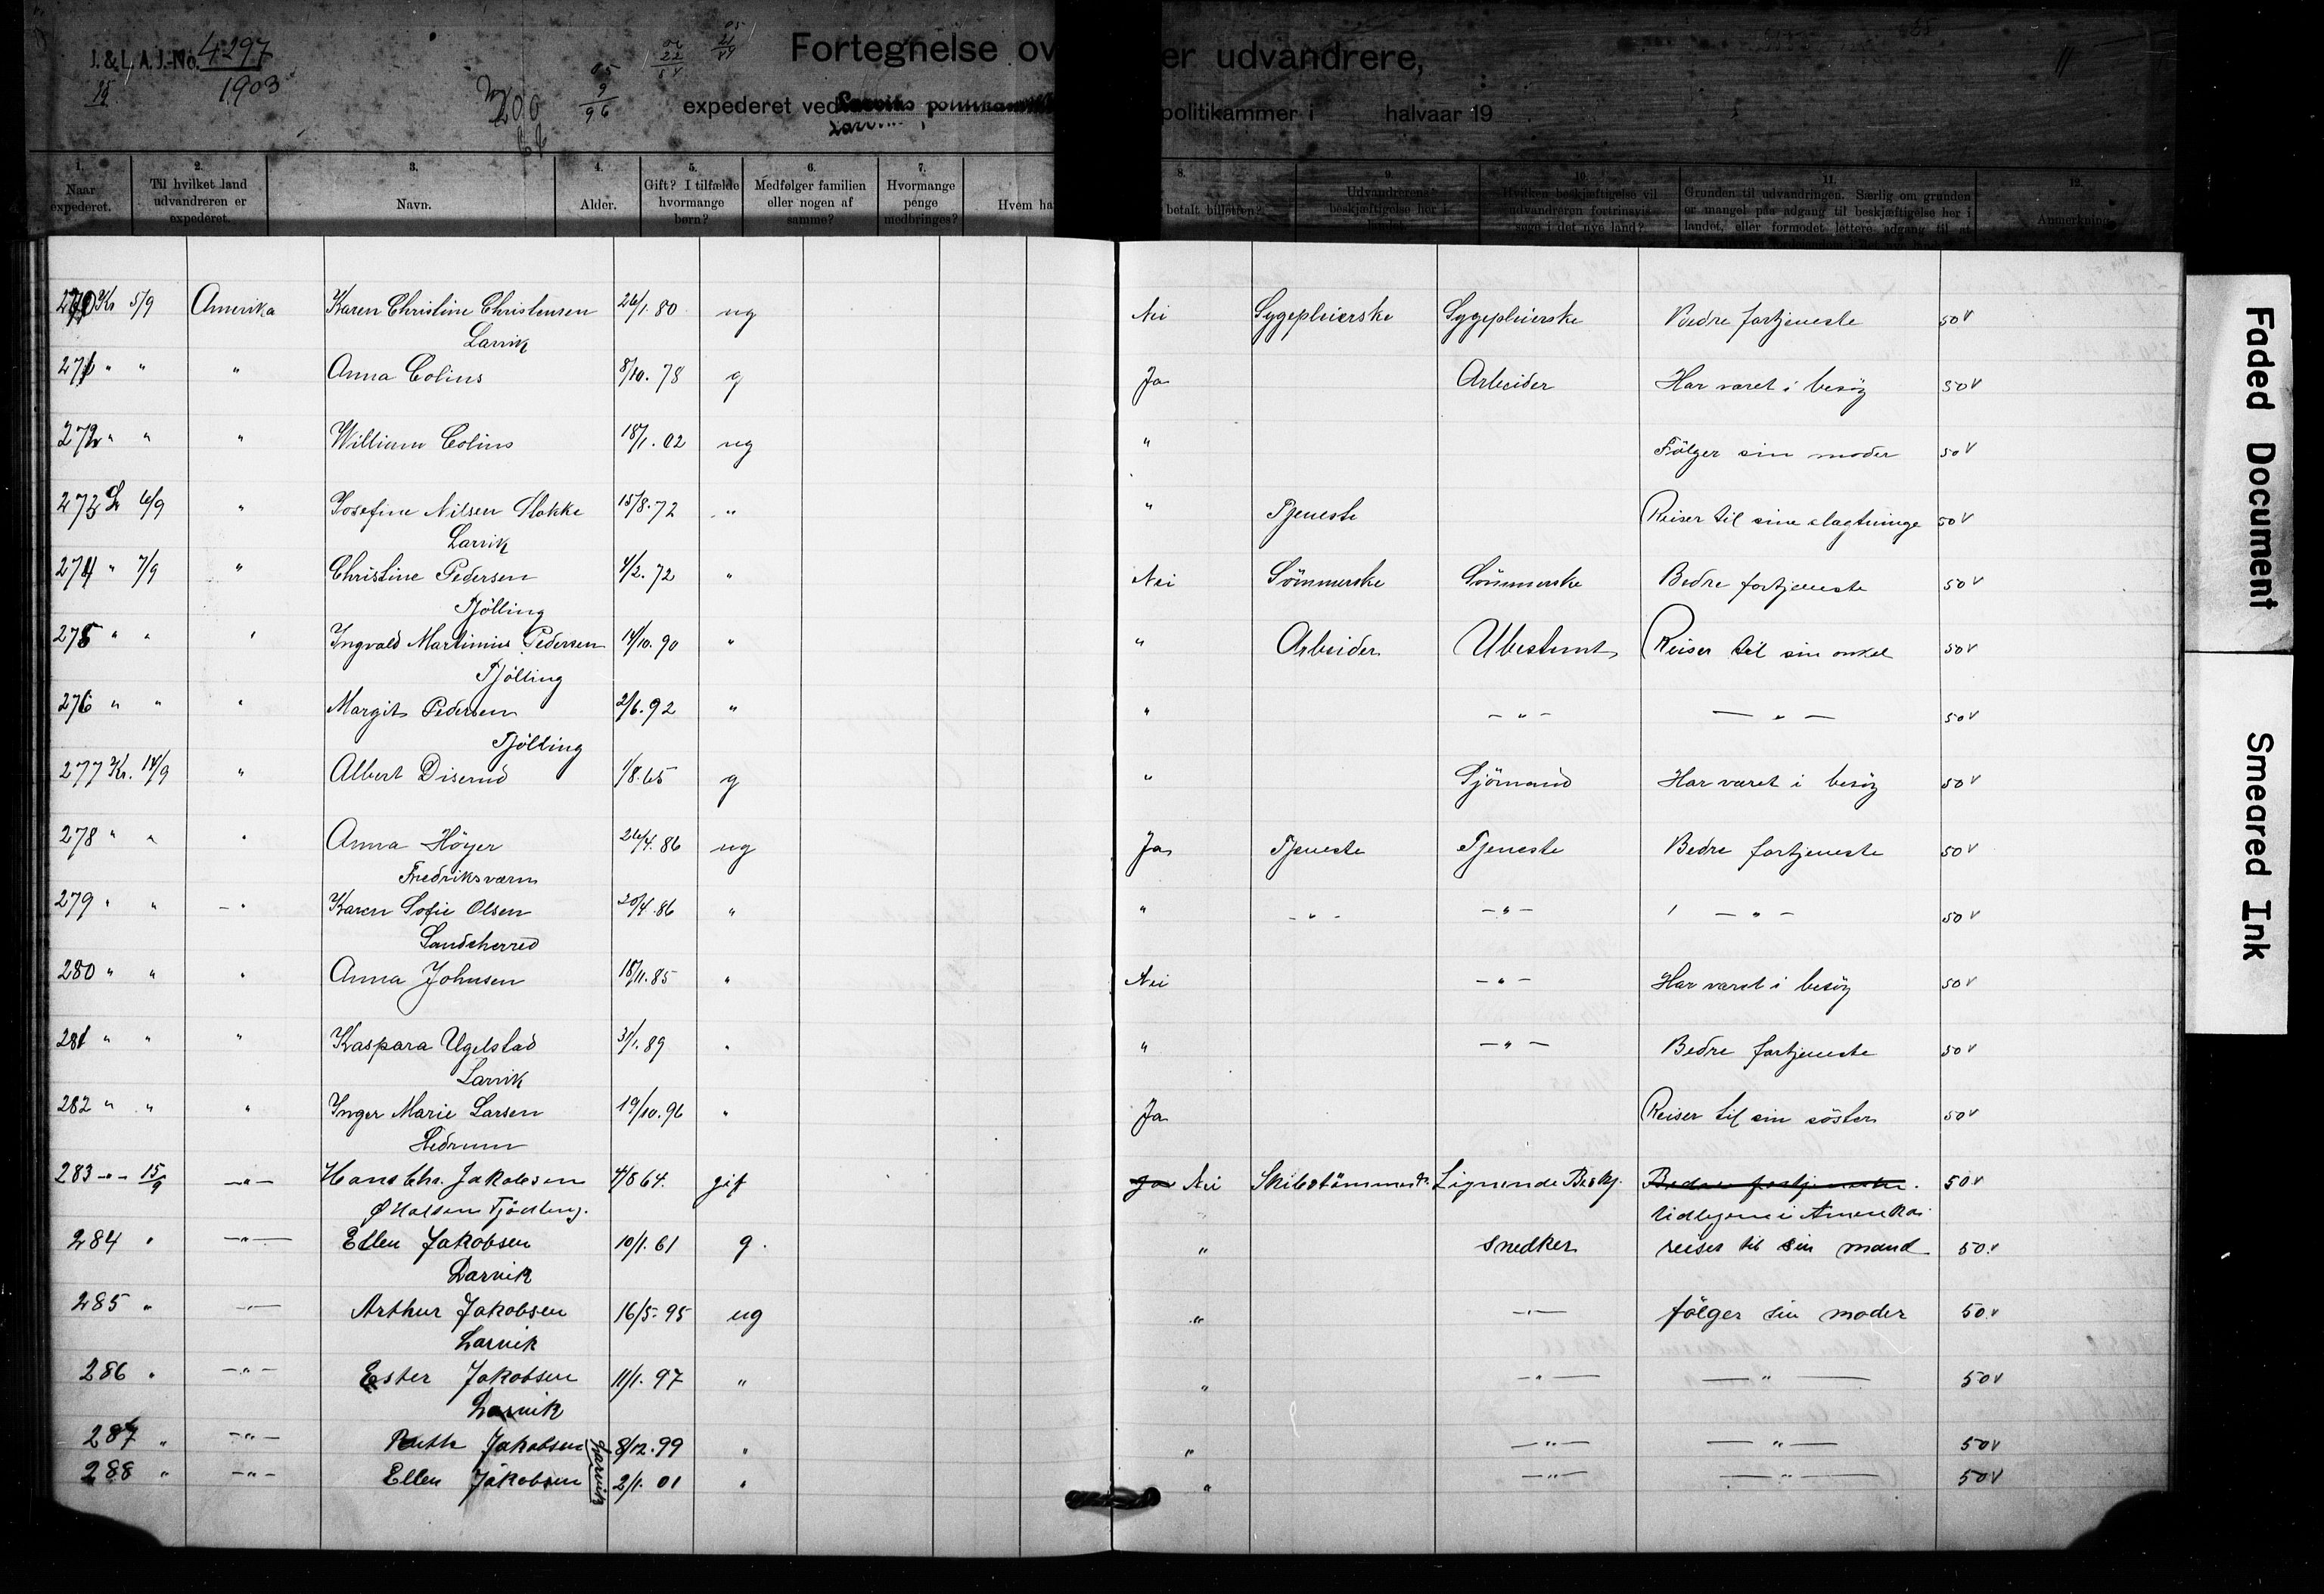 J. & L. A. J.-No. 4297
1903
Fortegnelse ov er udvandrere,
expederet ved politikammer i halvaar 19
1. Naar expederet.
2. Til hvilket land udvandreren er expederet.
3. Navn.
4. Alder.
5. Gift? I tilfælde hvormange børn?
6. Medfølger familien eller nogen af samme?
7. Hvormange penge medbringes?
Hvem ha
8. betalt billetten?
9. Udvandrerens beskjæftigelse her i landet.
10. Hvilken beskjæftigelse vil udvandreren fortrinsvis søge i det nye land?
11. Grunden til udvandringen. Særlig om grunden er mangel paa adgang til beskjæftigelse her i landet, eller formodet lettere adgang til at
12. Anmerkning.
270 Kr 5/9 Amerika Karen Christine Christensen 26/1. 80 ug Nei Sygepleierske Sygepleierske Bedre fortjeneste 50 v
Larvik
271 " " " Anna Colins 8/10. 78 g Ja Arbeider Har været i besøg 50 v
272 " " " William Colins 18/1. 02 ug " Følger sin moder 50 v
273 L 6/9 " Josefine Nilsen Stokke 15/8. 72 " " Tjeneste Reiser til sine slægtninge 50 v
Larvik
274 " 7/9 " Christine Pedersen 4/2. 72 " Nei Sömmerske Sömmerske Bedre fortjeneste 50 v
Tjölling
275 " " " Ingvald Martinius Pedersen 14/10. 90 " " Arbeider Ubestemt Reiser til sin onkel 50 v
Tjölling
276 " " " Margit Pedersen 2/6. 92 " " - " - - " - 50 v
Tjölling
277 Kr. 14/9 " Albert Diserud 1/8. 65 g " Sjömand Har været i besög 50 v
278 " " " Anna Höyer 26/4. 86 ug Ja Tjeneste Tjeneste Bedre fortjeneste 50 v
Fredriksværn
279 " " - " Karen Sofie Olsen 20/4. 86 " " - " - - " - - " - 50 v
Sandeherred
280 " " " Anna Johnsen 18/11. 85 " Nei - " - Har været i besög 50 v
281 " " " Kaspara Ugelstad 31/1. 89 " " - " - Bedre fortjeneste 50 v
Larvik
282 " " " Inger Marie Larsen 19/10. 96 " Ja Reiser til sin söster 50 v
Hedrum
283 - " - 15/9 - " - Hans Chr. Jakobsen 4/8 64. gif Ja Nei Skibstömmerm. Lignende Beskj. Bedre fortjeneste. 50 v
Ø Halsen Tjölling. tidligere i Amerika
284 " - " - Ellen Jakobsen 10/1. 61 g. " Snedker reiser til sin mand 50. v
Larvik
285 " - " - Arthur Jakobsen 16/5. 95 ug " - " - følger sin moder 50. v
Larvik
286 " - " - Ester Jakobsen 11/1. 97 " " - " - - " - 50 v
Larvik
287 " - " - Ruth Jakobsen Larvik 8/12. 99 " " - " - - " - 50 v
288 " - " - Ellen Jakobsen 2/1. 01 " " - " - - " - 50 v
Faded Document
Smeared Ink